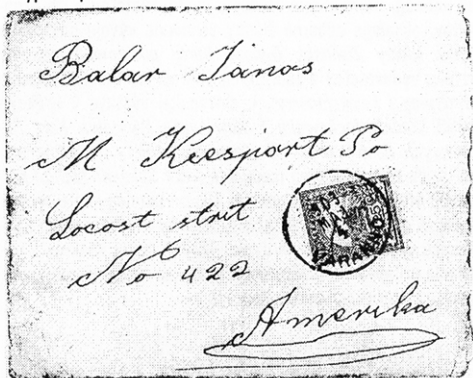 Balar Janos
M Keesport Pa
Locost strit
No 422
Amerika